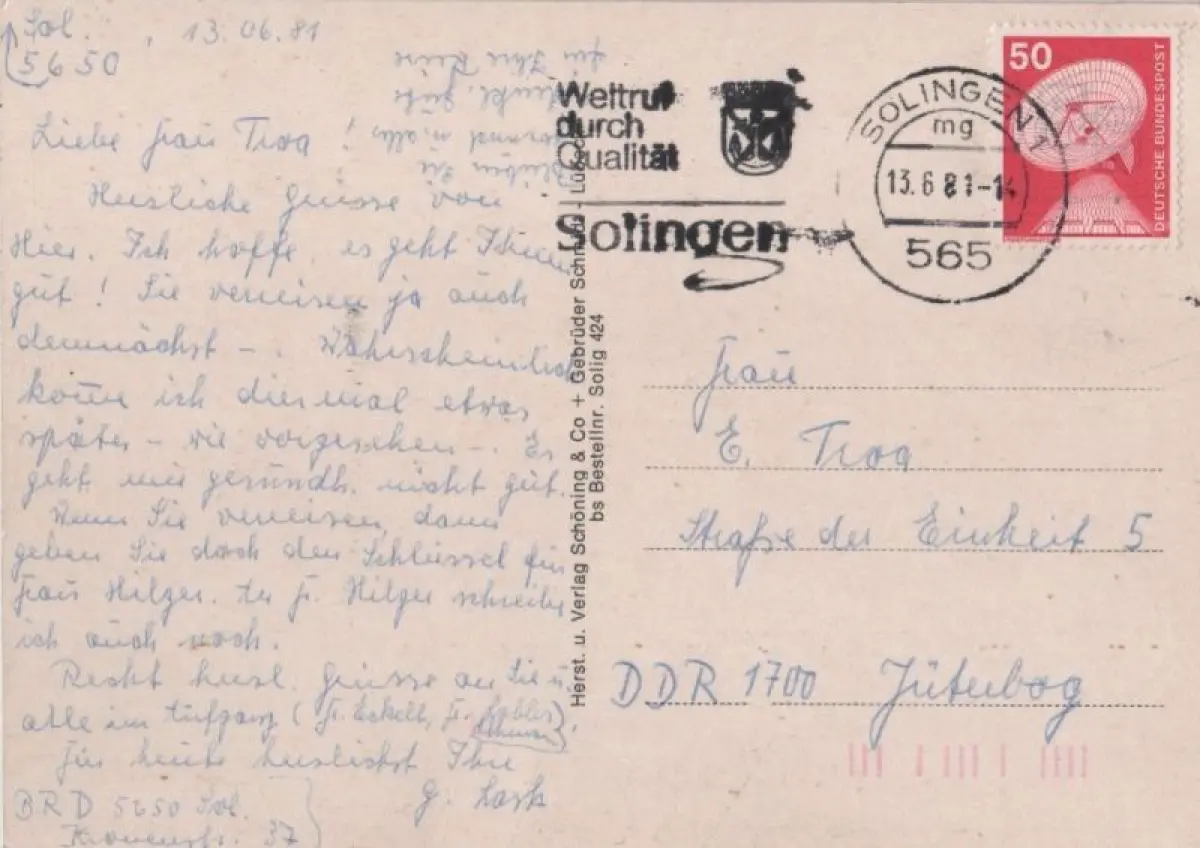 Sol. , 13.06.81
5650
Liebe Frau Trog !
Herzliche Grüsse von
Hier. Ich hoffe, es geht Ihnen
gut ! Sie verreisen ja auch
demnächst -. Wahrscheinlich
komme ich diesmal etwas
später - wie vorgesehen -. Es
geht mir gesundh. nicht gut.
Wenn Sie verreisen, dann
geben Sie doch den Schlüssel für
Frau Hilger. An Fr. Hilger schreibe
ich auch noch.
Recht herzl. Grüsse an Sie u.
alle im Aufgang (Fr. Eckelt, Fr.
Für heute herzlichst Ihre
G.
BRD 5650 Sol.
37
Bleiben Sie
gesund u. alles
für Ihre Reise
Herst. u. Verlag Schöning & Co + Gebrüder Schmidt - Lübeck
bs Bestellnr. Solig 424
Weltruf
durch
Qualität
Solingen
SOLINGEN 1
mg
13.6.81-14
565
50
DEUTSCHE BUNDESPOST
Frau
E. Trog
Straße der Einheit 5
DDR 1700 Jüterbog